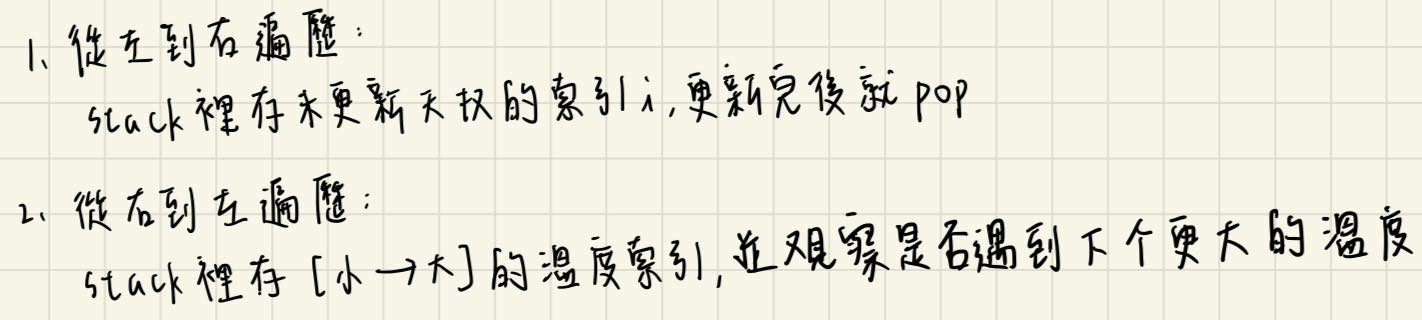 1、從左到右遍歷:
stack裡存未更新天数的索引i,更新完後就pop
2、從右到左遍歷:
stack裡存[小→大]的溫度索引,並观察是否遇到下个更大的溫度